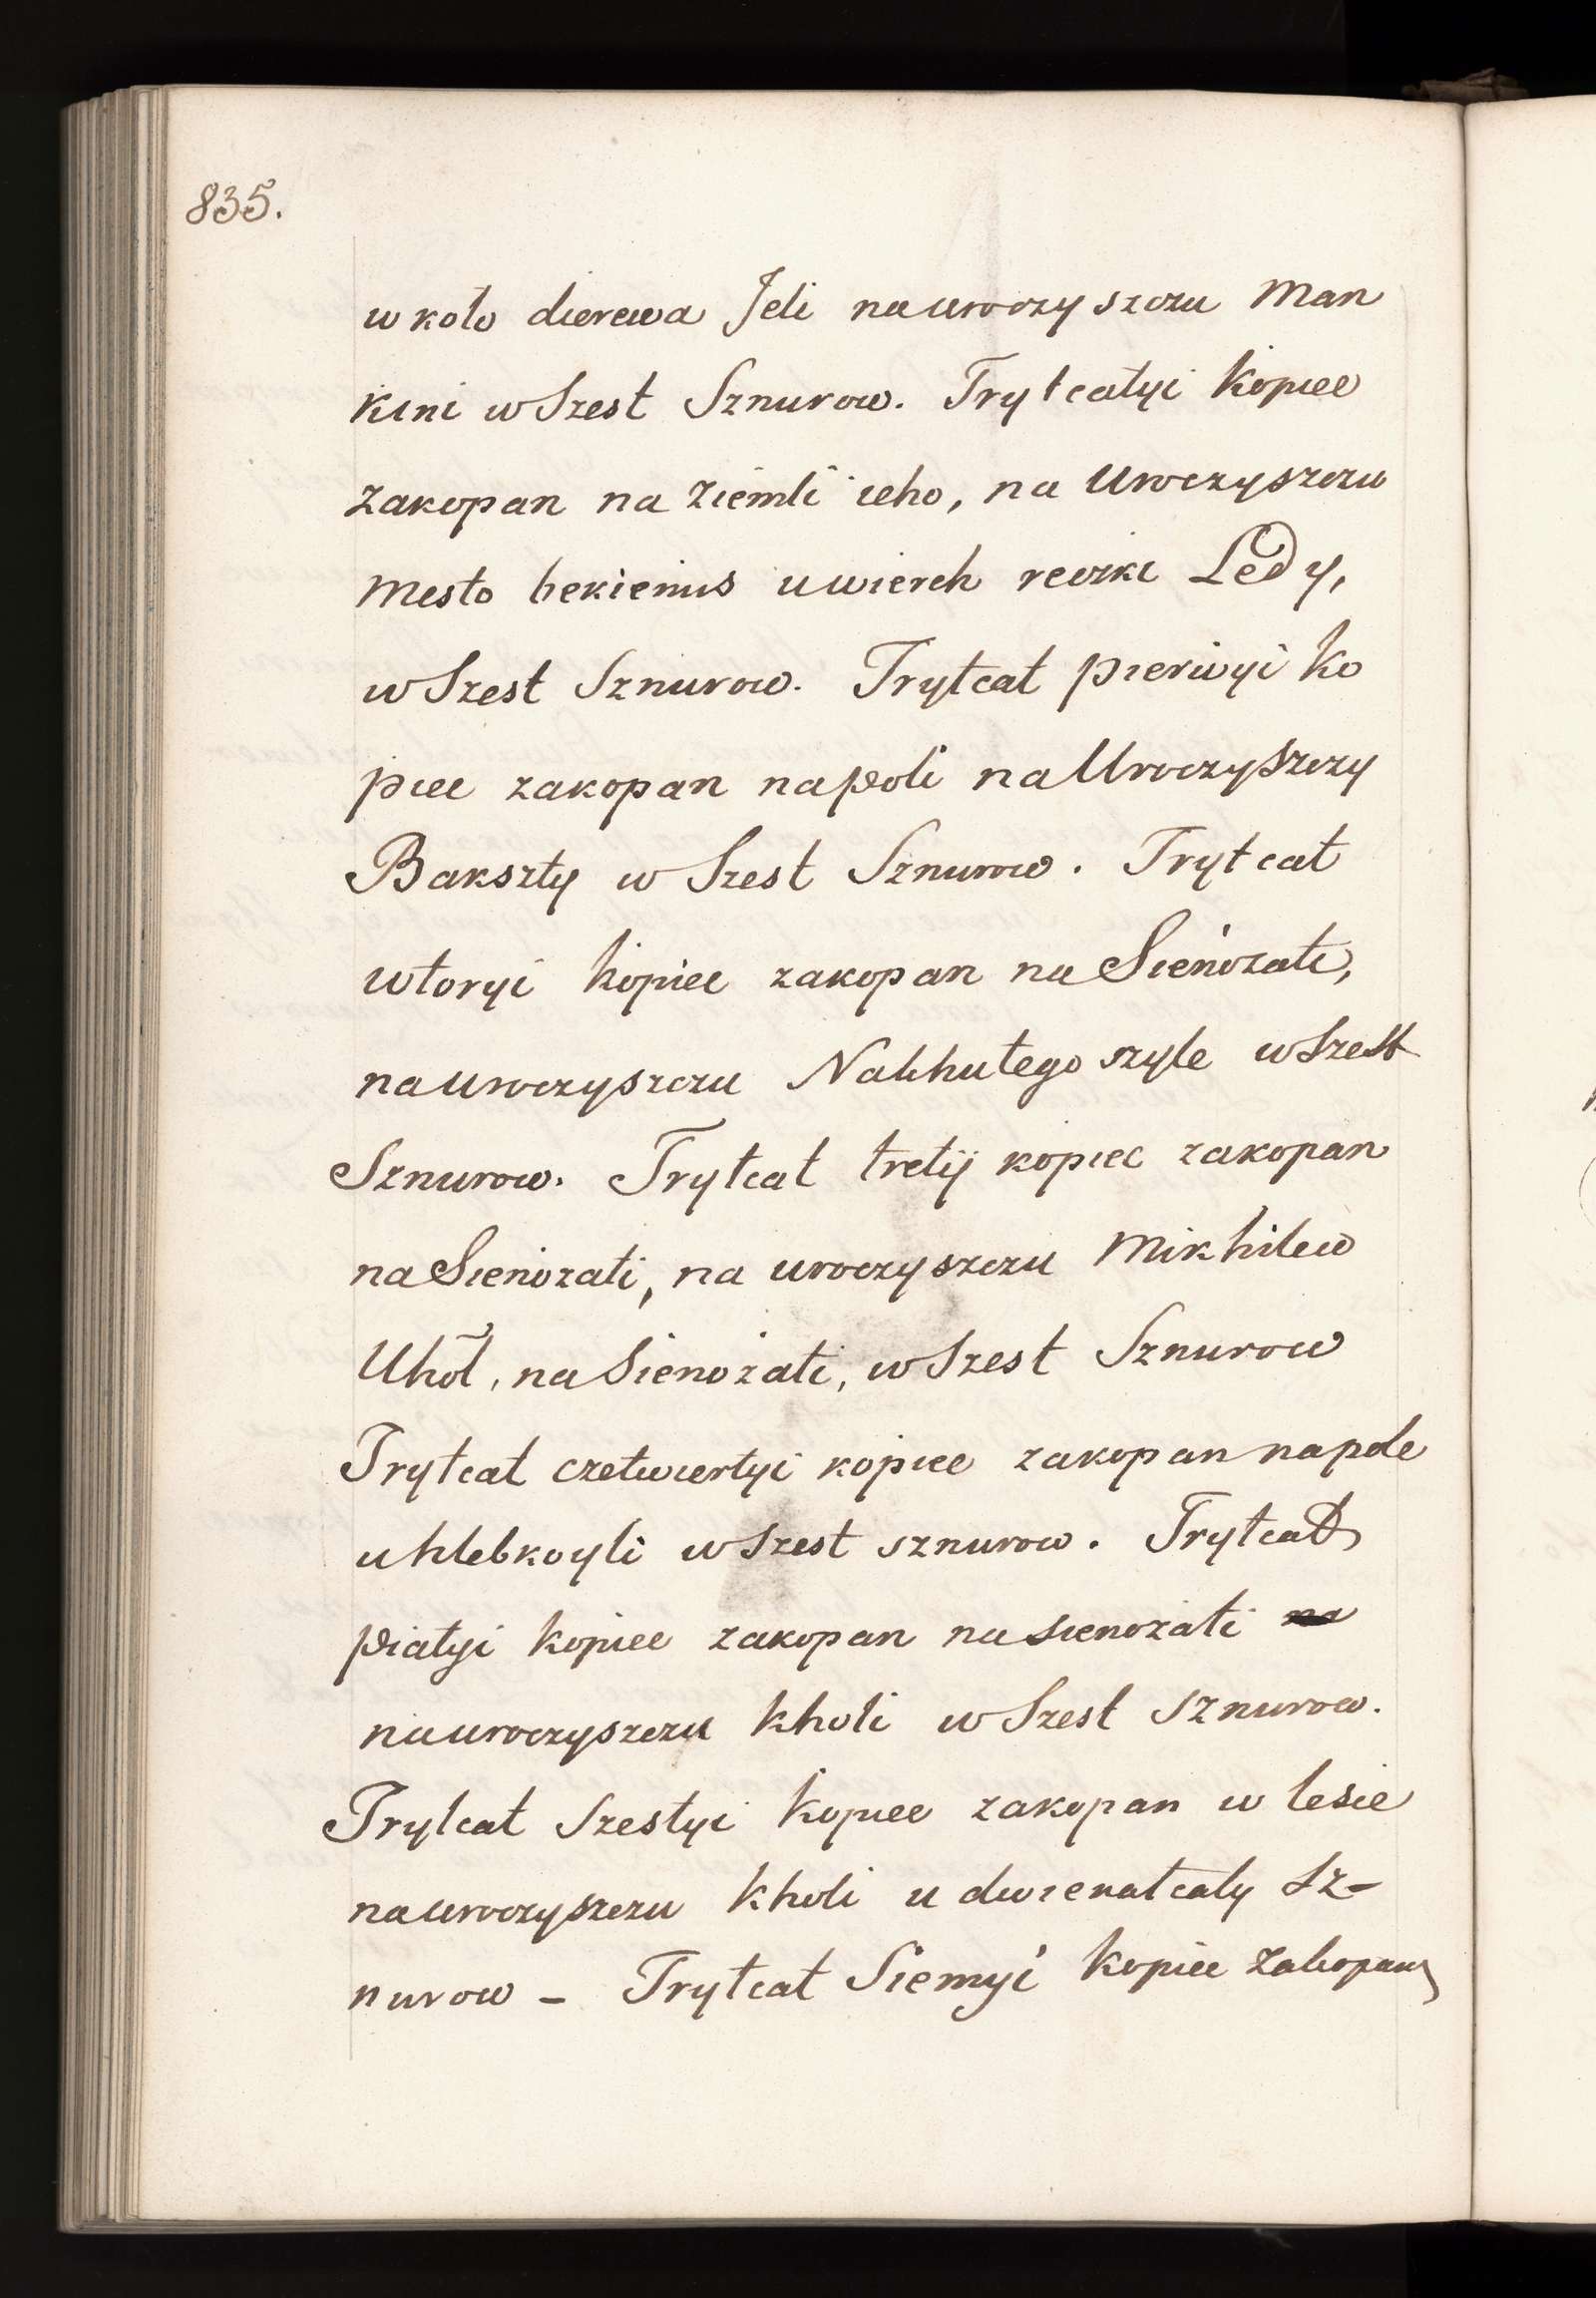 835.
w koło dierewa Jeli na uroczyszczu Man
kini w Szest Sznurow. Trytcatyi kopiec
zakopan na ziemli ieho, na Uroczyszczu
mesto hekienus uwierch reczki Ledy,
w Szest Sznurow. Trytcat pierwyi ko
piec zakopan na poli na Uroczyszczy
Bakszty w Szest Sznurow. Trytcat
wtoryi kopiec zakopan na Sienozati,
na uroczyszczu Nakhutego szyle w Szest
Sznurow. Trytcat tretij kopiec zakopan
na Sienozati, na uroczyszczu Mikhilew
Uhoł, na Sienożati, w Szest Sznurow
Trytcat czetwiertyi kopiec zakopan na pole
u hlebkoyli w Szest sznurow. Trytcat
piatyi kopiec zakopan na sienożati
na uroczyszczu kholi w Szest sznurow.
Trytcat Szestyi kopiec zakopan w lesie
na uroczyszczu kholi u dwienatcaty Sz-
nurow – Trytcat Siemyi kopiec zakopan